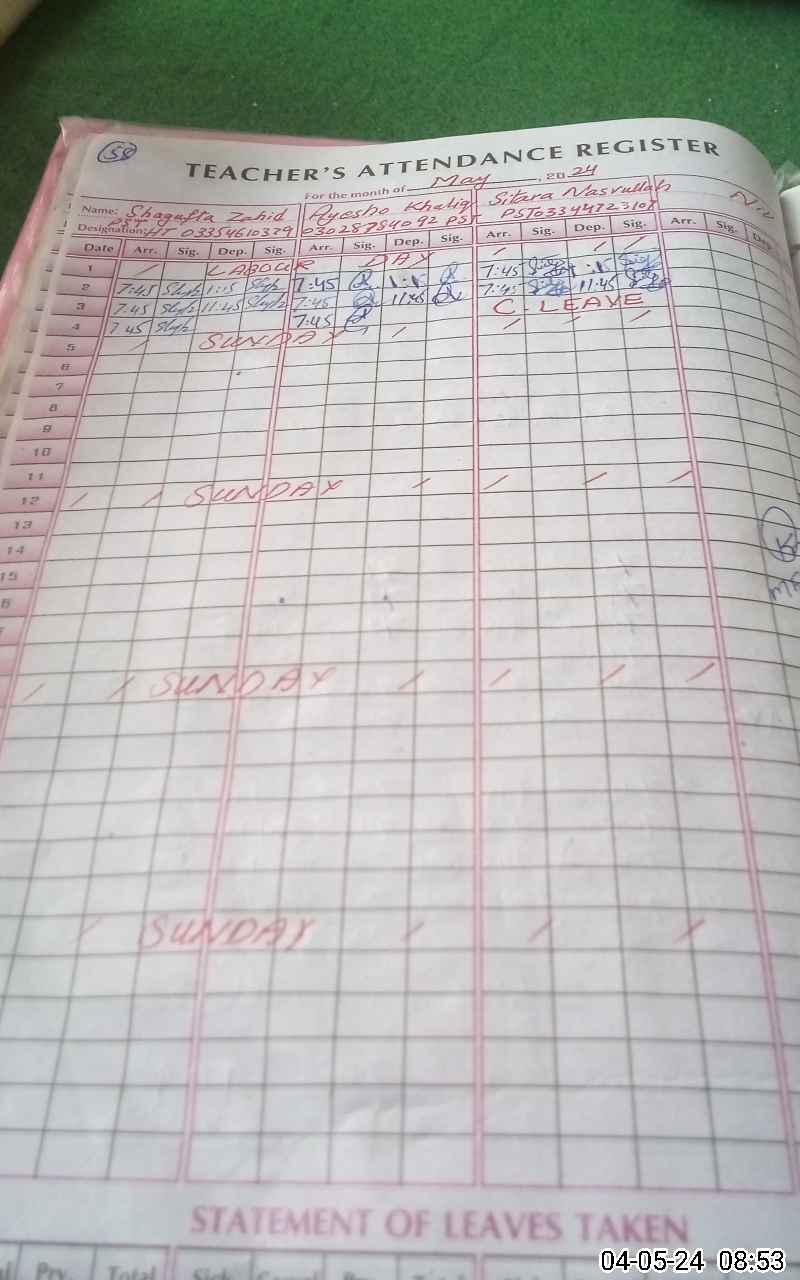 58
TEACHER'S ATTENDANCE REGISTER
For the month of May, 2024
Name: Shagufta Zahid Ayesha Khaliq Sitara Nasrullah
Designation: PST HT 03354610379 03028784092 PST PST
Date Arr. Sig. Dep. Sig. Arr. Sig. Dep. Sig. Arr. Sig. Dep. Sig. Arr. Sig. Dep
1 LABOUR DAY
2 7:45 1:15 7:45 1:15 7:45
3 7:45 11:45 7:45 11:45 7:45 11:45
4 7:45 7:45 C. LEAVE
5 SUNDAY
6
7
8
9
10
11
12 SUNDAY
13
14
15
6
SUNDAY
SUNDAY
STATEMENT OF LEAVES TAKEN
Prv. Total
04-05-24 08:53